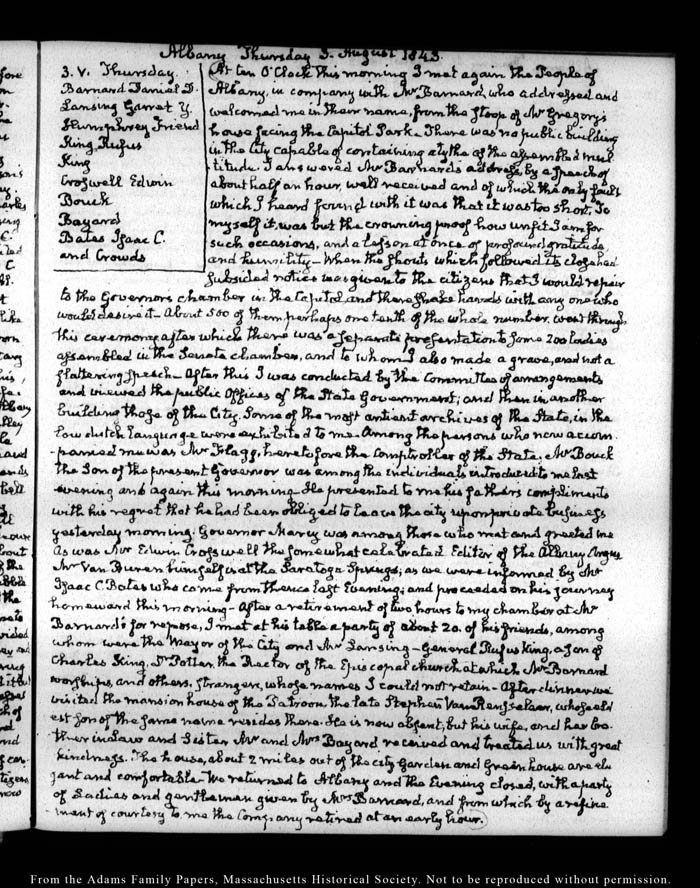 Albany Thursday 3. August 1843.
3. V. Thursday.
Barnard Daniel D.
Lansing Garret Y.
Humphrey Friend
King Rufus
King
Croswell Edwin
Bouck
Bayard
Bates Isaac C.
and Crowds
At ten O'Clock this morning I met again the People of
Albany, in company with Mr Barnard, who addressed and
welcomed me in their name, from the stoop of Mr Gregory's
house facing the Capitol Park. There was no public building
in the City capable of containing a tythe of the assembled mul
titude. I answered Mr Barnard's address by a speech of
about half an hour, well received and of which the only fault
which I heard found with it was that it was too short, To
myself it was but the crowning proof how unfit I am for
such occasions, and a lesson at once of profound gratitude
and humility— When the shouts which followed its close had
subsided notice was given to the citizens that I would repair
to the Governors chamber in the Capitol and there shake hands with any one who
would desire it— About 500 of them perhaps one tenth of the whole number, went through
this ceremony, after which there was a separate presentation to some 200 ladies
assembled in the Senate chamber, and to whom I also made a grave, and not a
flattering speech— After this I was conducted by the Committee of arrangements
and viewed the public Offices of the State Government; and then in another
building those of the City. Some of the most antient archives of the State, in the
low dutch language were exhibited to me. Among the persons who now accom
panied me was Mr Flagg, heretofore the Comptroller of the State. Mr Bouck
the Son of the present Governor was among the individuals introduced to me last
evening and again this morning. He presented to me his father's compliments
with his regret that he had been obliged to leave the city upon private business
yesterday morning. Governor Marcy was among those who met and greeted me
as was Mr Edwin Croswell the somewhat celebrated Editor of the Albany Argus
Mr Van Buren himself is at the Saratoga Springs, as we were informed by Mr
Isaac C. Bates who came from thence last Evening, and proceeded on his journey
homeward this morning— After a retirement of two hours to my chamber at Mr
Barnard's for repose, I met at his table a party of about 20. of his friends, among
whom were the Mayor of the City and Mr Lansing— General Rufus King, a son of
Charles King. Dr Potter, the Rector of the Episcopal church at which Mr Barnard
worships, and others, strangers, whose names I could not retain— After dinner we
visited the mansion house of the Patroon, the late Stephen Van Rensselaer, whose eld
est son of the same name resides there. He is now absent, but his wife, and her bro
ther in law and Sister Mr and Mrs Bayard received and treated us with great
kindness. The house, about 2 miles out of the city Garden and Green house are ele
gant and comfortable— We returned to Albany and the Evening closed, with a party
of Ladies and gentlemen given by Mrs Barnard, and from which by a refine
ment of courtesy to me the Company retired at an early hour.
From the Adams Family Papers, Massachusetts Historical Society. Not to be reproduced without permission.